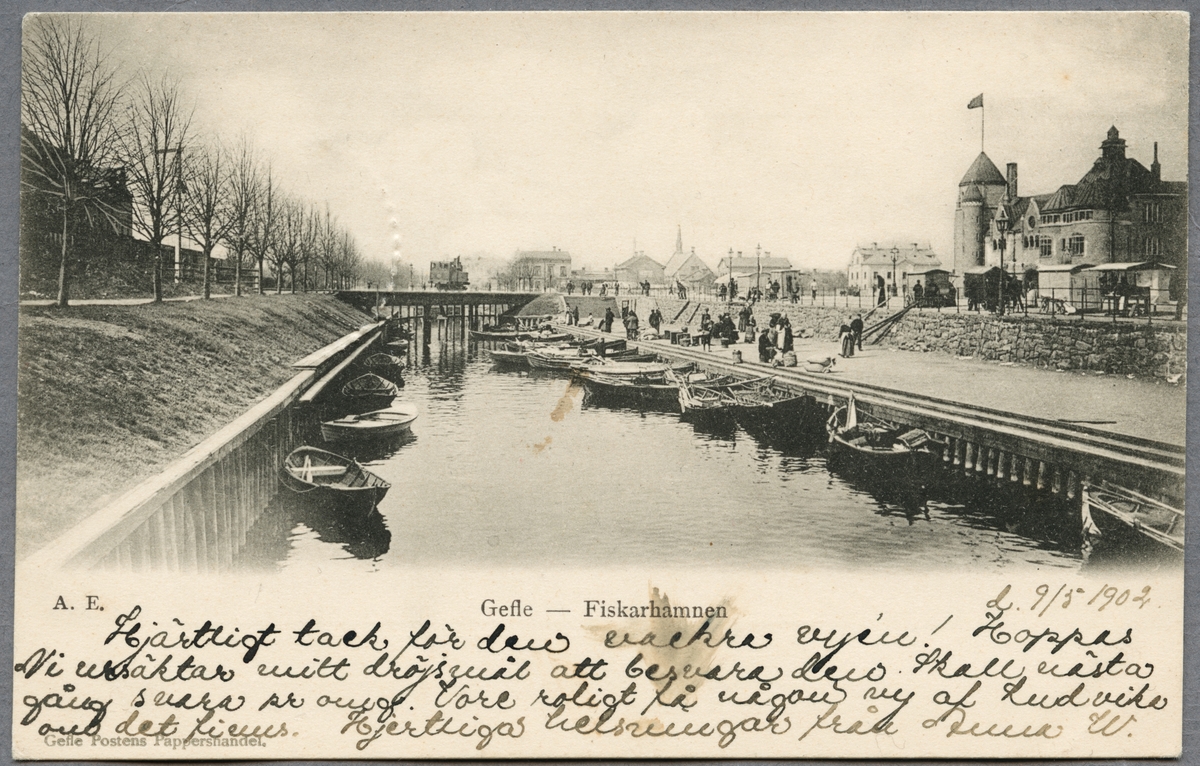 A. E.
Gefle — Fiskarhamnen
d. 9/5 1902.
Hjärtligt tack för den vackra vyén! Hoppas
Ni ursäktar mitt dröjsmål att besvara den. Skall nästa
gång svara pr omg. Vore roligt få någon vy af Ludvika
om det finns. Hjertliga helsningar från Anna W.
Gefle Postens Pappershandel.